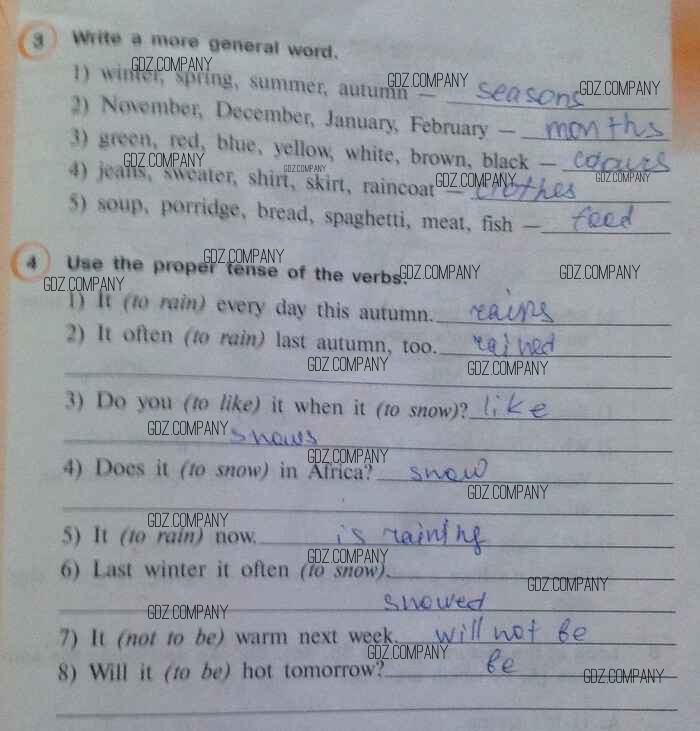 3 Write a more general word.
GDZ.COMPANY GDZ.COMPANY GDZ.COMPANY
1) winter, spring, summer, autumn — seasons
2) November, December, January, February — months
3) green, red, blue, yellow, white, brown, black — colours
GDZ.COMPANY GDZ.COMPANY GDZ.COMPANY GDZ.COMPANY
4) jeans, sweater, shirt, skirt, raincoat — clothes
5) soup, porridge, bread, spaghetti, meat, fish — feed
4 Use the proper tense of the verbs.
GDZ.COMPANY GDZ.COMPANY GDZ.COMPANY GDZ.COMPANY
1) It (to rain) every day this autumn. rains
2) It often (to rain) last autumn, too. rained
GDZ.COMPANY GDZ.COMPANY
3) Do you (to like) it when it (to snow)? like
GDZ.COMPANY snows
GDZ.COMPANY
4) Does it (to snow) in Africa? snow
GDZ.COMPANY
GDZ.COMPANY
5) It (to rain) now. is raining
GDZ.COMPANY
6) Last winter it often (to snow).
GDZ.COMPANY
snowed
GDZ.COMPANY
7) It (not to be) warm next week. will not be
GDZ.COMPANY
8) Will it (to be) hot tomorrow? be
GDZ.COMPANY